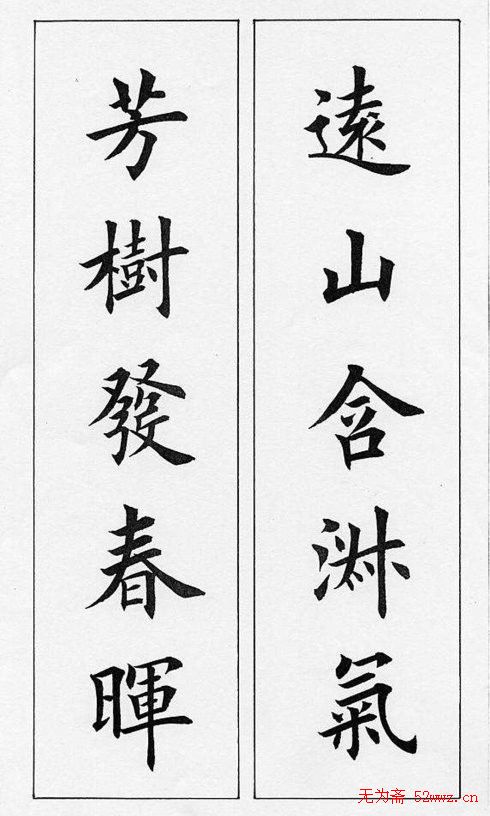 遠山含淑氣
芳樹發春暉
无为斋 52wwz.cn